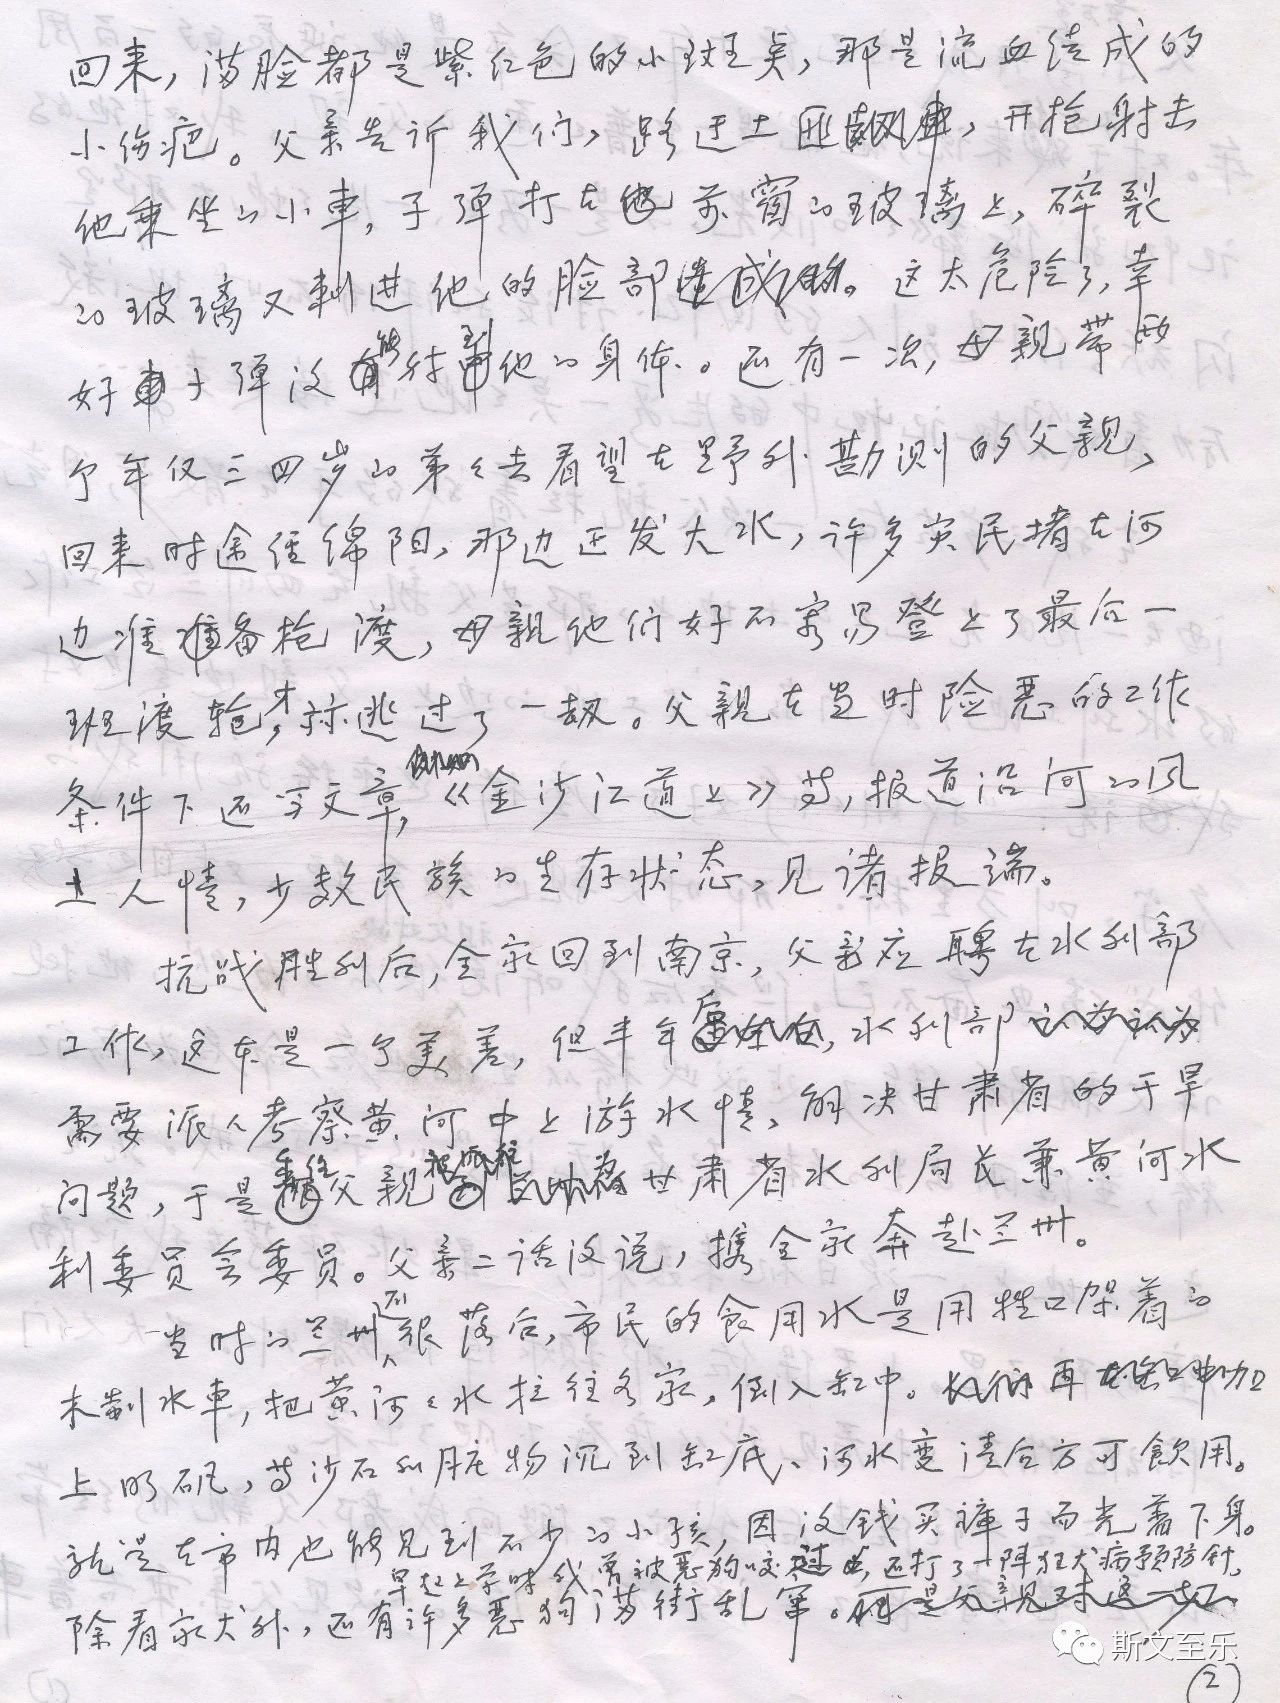 回来，满脸都是紫红色的小斑点，那是流血结成的
小伤疤。父亲告诉我们，路遇土匪，开枪射击
他乘坐的小车，子弹打在前窗的玻璃上，碎裂
的玻璃又刺进他的脸部。这太危险了，幸
好子弹没能射到他的身体。还有一次，母亲带两
个年仅三四岁的弟弟去看望在野外勘测的父亲，
回来时途径绵阳，那边正发大水，许多灾民堵在河
边准备抢渡，母亲他们好不容易登上了最后一
班渡轮，才逃过了一劫。父亲在当时险恶的工作
条件下还写文章，《金沙江道上》等，报道沿河的风
土人情，少数民族的生存状态，见诸报端。
抗战胜利后，全家回到南京，父亲应聘在水利部
工作，这本是一个美差，但半年后，水利部
需要派人考察黄河中上游水情，解决甘肃省的干旱
问题，于是父亲甘肃省水利局长兼黄河水
利委员会委员。父亲二话没说，携全家奔赴兰州。
当时的兰州很落后，市民的食用水是用牲口架着的
木制水车，把黄河之水拉往各家，倒入缸中。再加
上明矾，等沙石和脏物沉到缸底、河水变清后方可飲用。
就是在市内也能见到不少的小孩，因没钱买裤子而光着下身。
早起上学时我曾被恶狗咬过，还打了一阵狂犬病预防针。
除看家犬外，还有许多恶狗满街乱窜。可是父亲对这一切
斯文至乐
2